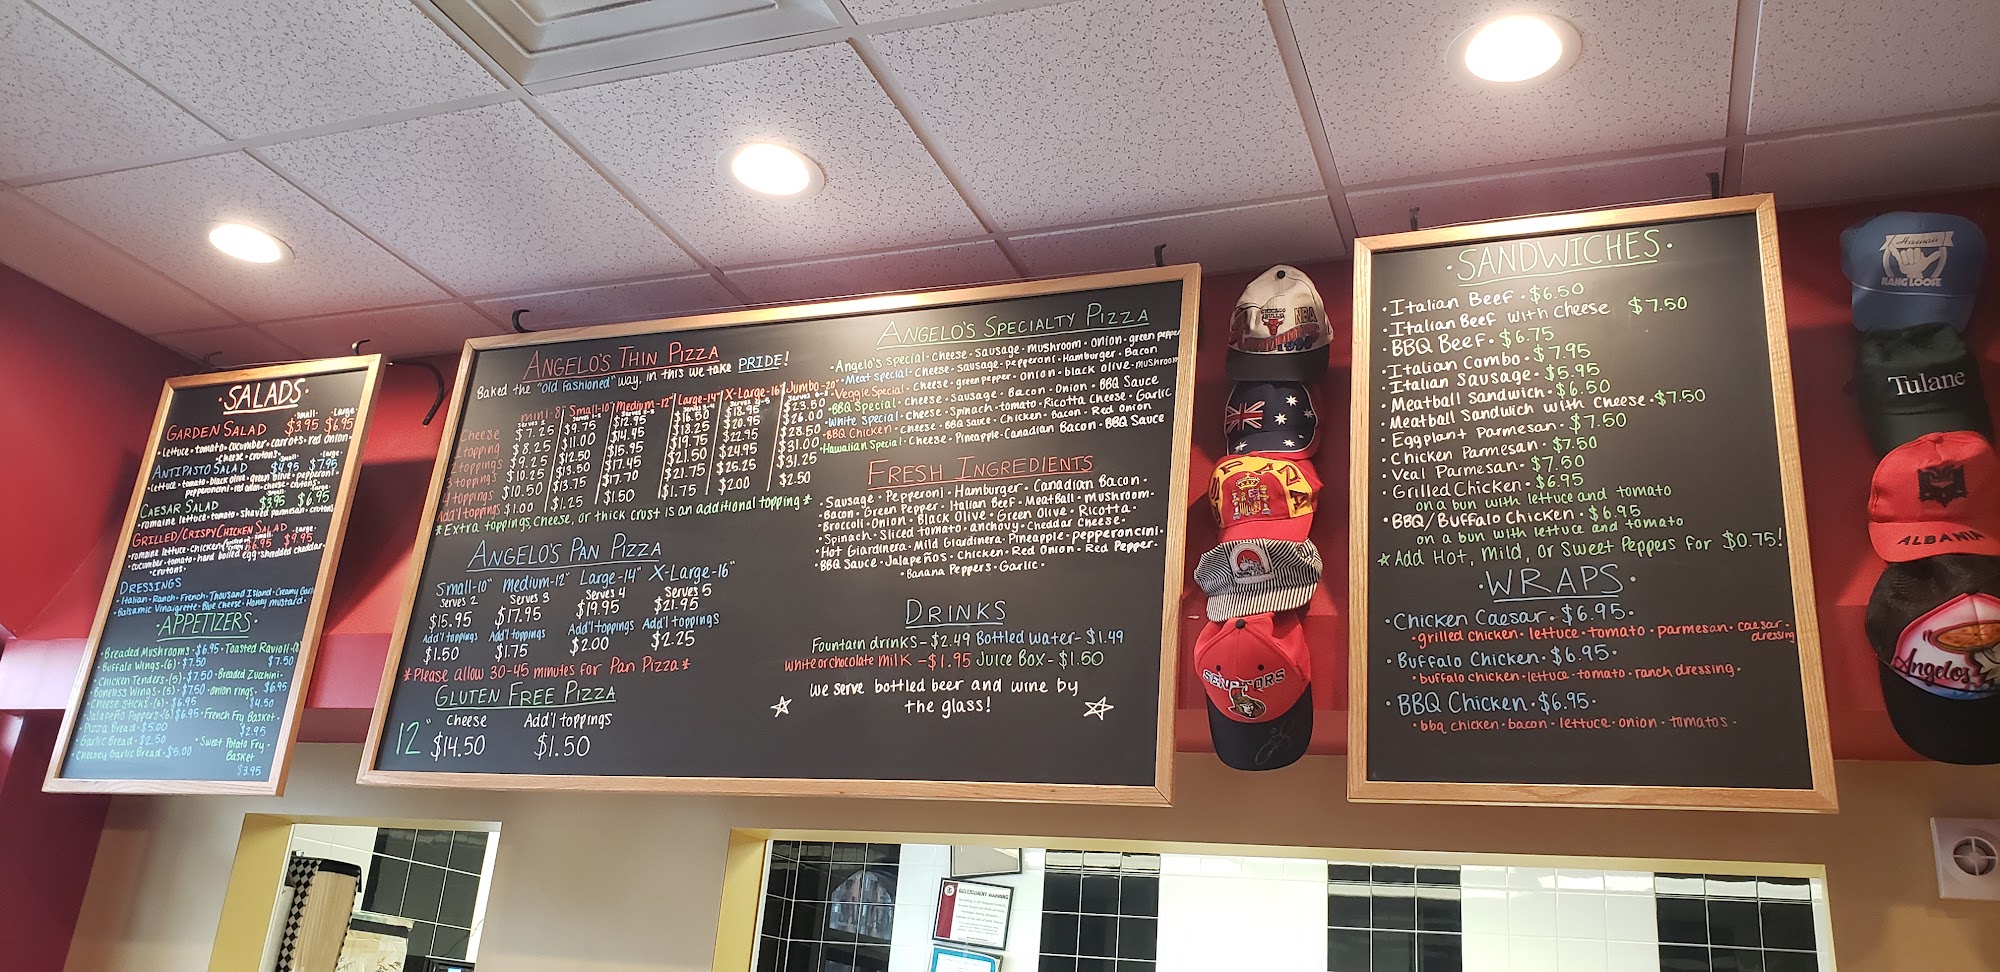 ·SALADS·
·Small· ·Large·
GARDEN SALAD $3.95 $6.95
·lettuce·tomato·cucumber·carrots·red onion·
·cheese·croutons·
ANTIPASTO SALAD $4.95 $7.95
·lettuce·tomato·black olive·green olive·pepperoni·
pepperoncini·red onion·cheese·croutons·
CAESAR SALAD $3.95 $6.95
·romaine lettuce·tomato·shaved parmesan·croutons
GRILLED/CRISPY CHICKEN SALAD
·romaine lettuce·chicken $6.95 $9.95
cucumber·tomato·hard boiled egg·shredded cheddar·
·croutons·
DRESSINGS
·Italian·Ranch·French·Thousand Island·Creamy Garlic
·Balsamic Vinaigrette·Blue Cheese·Honey mustard·
·APPETIZERS·
·Breaded Mushrooms·$6.95·Toasted Ravioli·
·Buffalo Wings·(6)·$7.50 $7.50
·Chicken Tenders·(5)·$7.50·Breaded Zucchini·
·Boneless Wings·(5)·$7.50·onion rings· $6.95
·Cheese sticks·(6)·$6.95 $4.50
·Jalapeño Poppers·(6)$6.95·French Fry Basket·
·Pizza Bread·$5.00 $2.95
·Garlic Bread·$2.50 ·Sweet Potato Fry·
·Cheesey Garlic Bread·$5.00 Basket
$3.95
ANGELO'S THIN PIZZA
Baked the "old fashioned" way, in this we take PRIDE!
mini-8" Small-10" Medium-12" Large-14" X-Large-16" Jumbo-20"
Cheese $7.25 $9.75 $12.95 $16.50 $18.95 $23.50
1 topping $8.25 $11.00 $14.45 $18.25 $20.95 $26.00
2 toppings $9.25 $12.50 $15.95 $19.75 $22.95 $28.50
3 toppings $10.25 $13.50 $17.45 $21.50 $24.95 $31.00
4 toppings $10.50 $13.75 $17.70 $21.75 $25.25 $31.25
Add'l toppings $1.00 $1.25 $1.50 $1.75 $2.00 $2.50
*Extra toppings, cheese, or thick crust is an additional topping*
ANGELO'S PAN PIZZA
Small-10" Medium-12" Large-14" X-Large-16"
Serves 2 Serves 3 Serves 4 Serves 5
$15.95 $17.95 $19.95 $21.95
Add'l toppings Add'l toppings Add'l toppings Add'l toppings
$1.50 $1.75 $2.00 $2.25
*Please allow 30-45 minutes for Pan Pizza*
GLUTEN FREE PIZZA
Cheese Add'l toppings
12" $14.50 $1.50
ANGELO'S SPECIALTY PIZZA
·Angelo's Special·Cheese·Sausage·Mushroom·Onion·green pepper
·Meat Special·Cheese·Sausage·Pepperoni·Hamburger·Bacon
·Veggie Special·Cheese·green pepper·Onion·black olive·mushroom
·BBQ Special·Cheese·Sausage·Bacon·Onion·BBQ Sauce
·White Special·Cheese·Spinach·tomato·Ricotta Cheese·Garlic
·BBQ Chicken·Cheese·BBQ Sauce·Chicken·Bacon·Red Onion
·Hawaiian Special·Cheese·Pineapple·Canadian Bacon·BBQ Sauce
FRESH INGREDIENTS
·Sausage·Pepperoni·Hamburger·Canadian Bacon·
·Bacon·Green Pepper·Italian Beef·MeatBall·Mushroom·
·Broccoli·Onion·Black Olive·Green Olive·Ricotta·
·Spinach·Sliced tomato·anchovy·Cheddar Cheese·
·Hot Giardinera·Mild Giardinera·Pineapple·Pepperoncini·
·BBQ Sauce·Jalapeños·Chicken·Red Onion·Red Pepper·
·Banana Peppers·Garlic·
DRINKS
Fountain drinks-$2.49 Bottled water-$1.49
White or chocolate milk-$1.95 Juice Box-$1.50
We serve bottled beer and wine by
the glass!
·SANDWICHES·
·Italian Beef·$6.50
·Italian Beef with Cheese $7.50
·BBQ Beef·$6.75
·Italian Combo·$7.95
·Italian Sausage·$5.95
·Meatball Sandwich·$6.50
·Meatball Sandwich with Cheese·$7.50
·Eggplant Parmesan·$7.50
·Chicken Parmesan·$7.50
·Veal Parmesan·$7.50
·Grilled Chicken·$6.95
on a bun with lettuce and tomato
·BBQ/Buffalo Chicken·$6.95
on a bun with lettuce and tomato
*Add Hot, Mild, or Sweet Peppers for $0.75!
·WRAPS·
·Chicken Caesar·$6.95·
·grilled chicken·lettuce·tomato·parmesan·caesar·
dressing
·Buffalo Chicken·$6.95·
·buffalo chicken·lettuce·tomato·ranch dressing·
·BBQ Chicken·$6.95·
·bbq chicken·bacon·lettuce·onion·tomatos·
NBA
SENATORS
Hawaii
HANG LOOSE
Tulane
ALBANIA
Angelos
GOVERNMENT WARNING